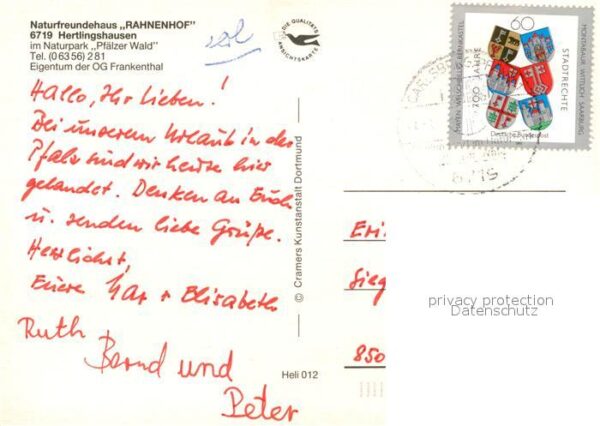 Naturfreundehaus „RAHNENHOF"
6719 Hertlingshausen
im Naturpark „Pfälzer Wald"
Tel. (06356) 281
Eigentum der OG Frankenthal
Hallo, Ihr Lieben!
Bei unserem Urlaub in der
Pfalz sind wir heute hier
gelandet. Denken an Euch
u. senden liebe Grüße.
Herzlichst,
Eure + Elisabeth
Ruth
Bernd und
Peter
DIE QUALITÄTS
ANSICHTSKARTE
© Cramers Kunstanstalt Dortmund
Heli 012
60
700 JAHRE
STADTRECHTE
MONTABAUR WITTLICH SAARBURG
MAYEN WELSCHBILLIG BERNKASTEL
Deutsche Bundespost
CARLSBERG
6719
Eri
Sieg
850
privacy protection
Datenschutz